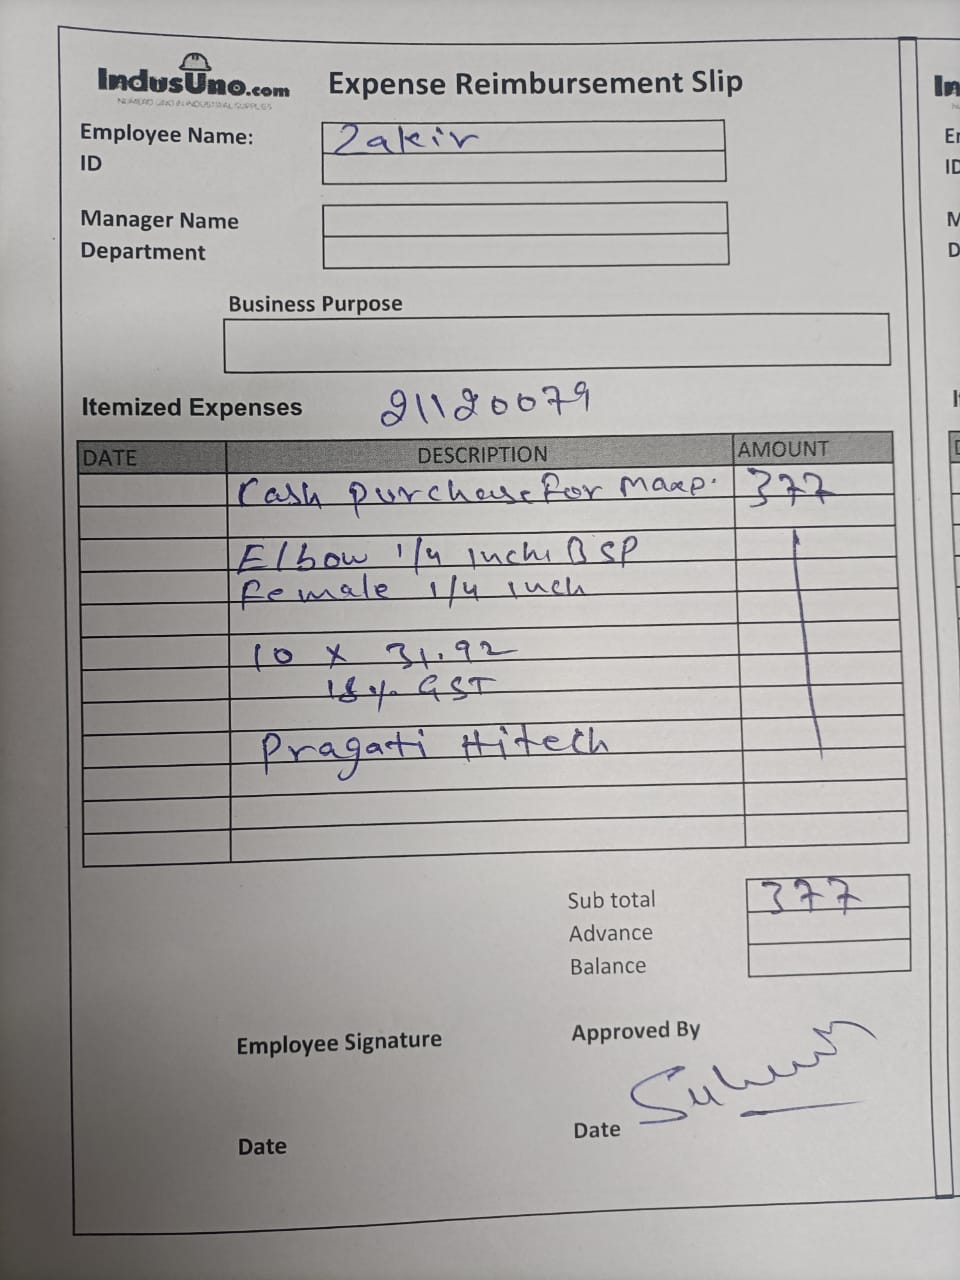 IndusUno.com
NUMERO UNO IN INDUSTRIAL SUPPLIES
Expense Reimbursement Slip
Employee Name: Zakir
ID
Manager Name
Department
Business Purpose
Itemized Expenses 21120079
DATE DESCRIPTION AMOUNT
Cash purchase for 377
Elbow 1/4 inch BSP
Female 1/4 inch
10 x 31.92
18% GST
Pragati Hitech
Sub total 377
Advance
Balance
Employee Signature
Approved By
Date
Date